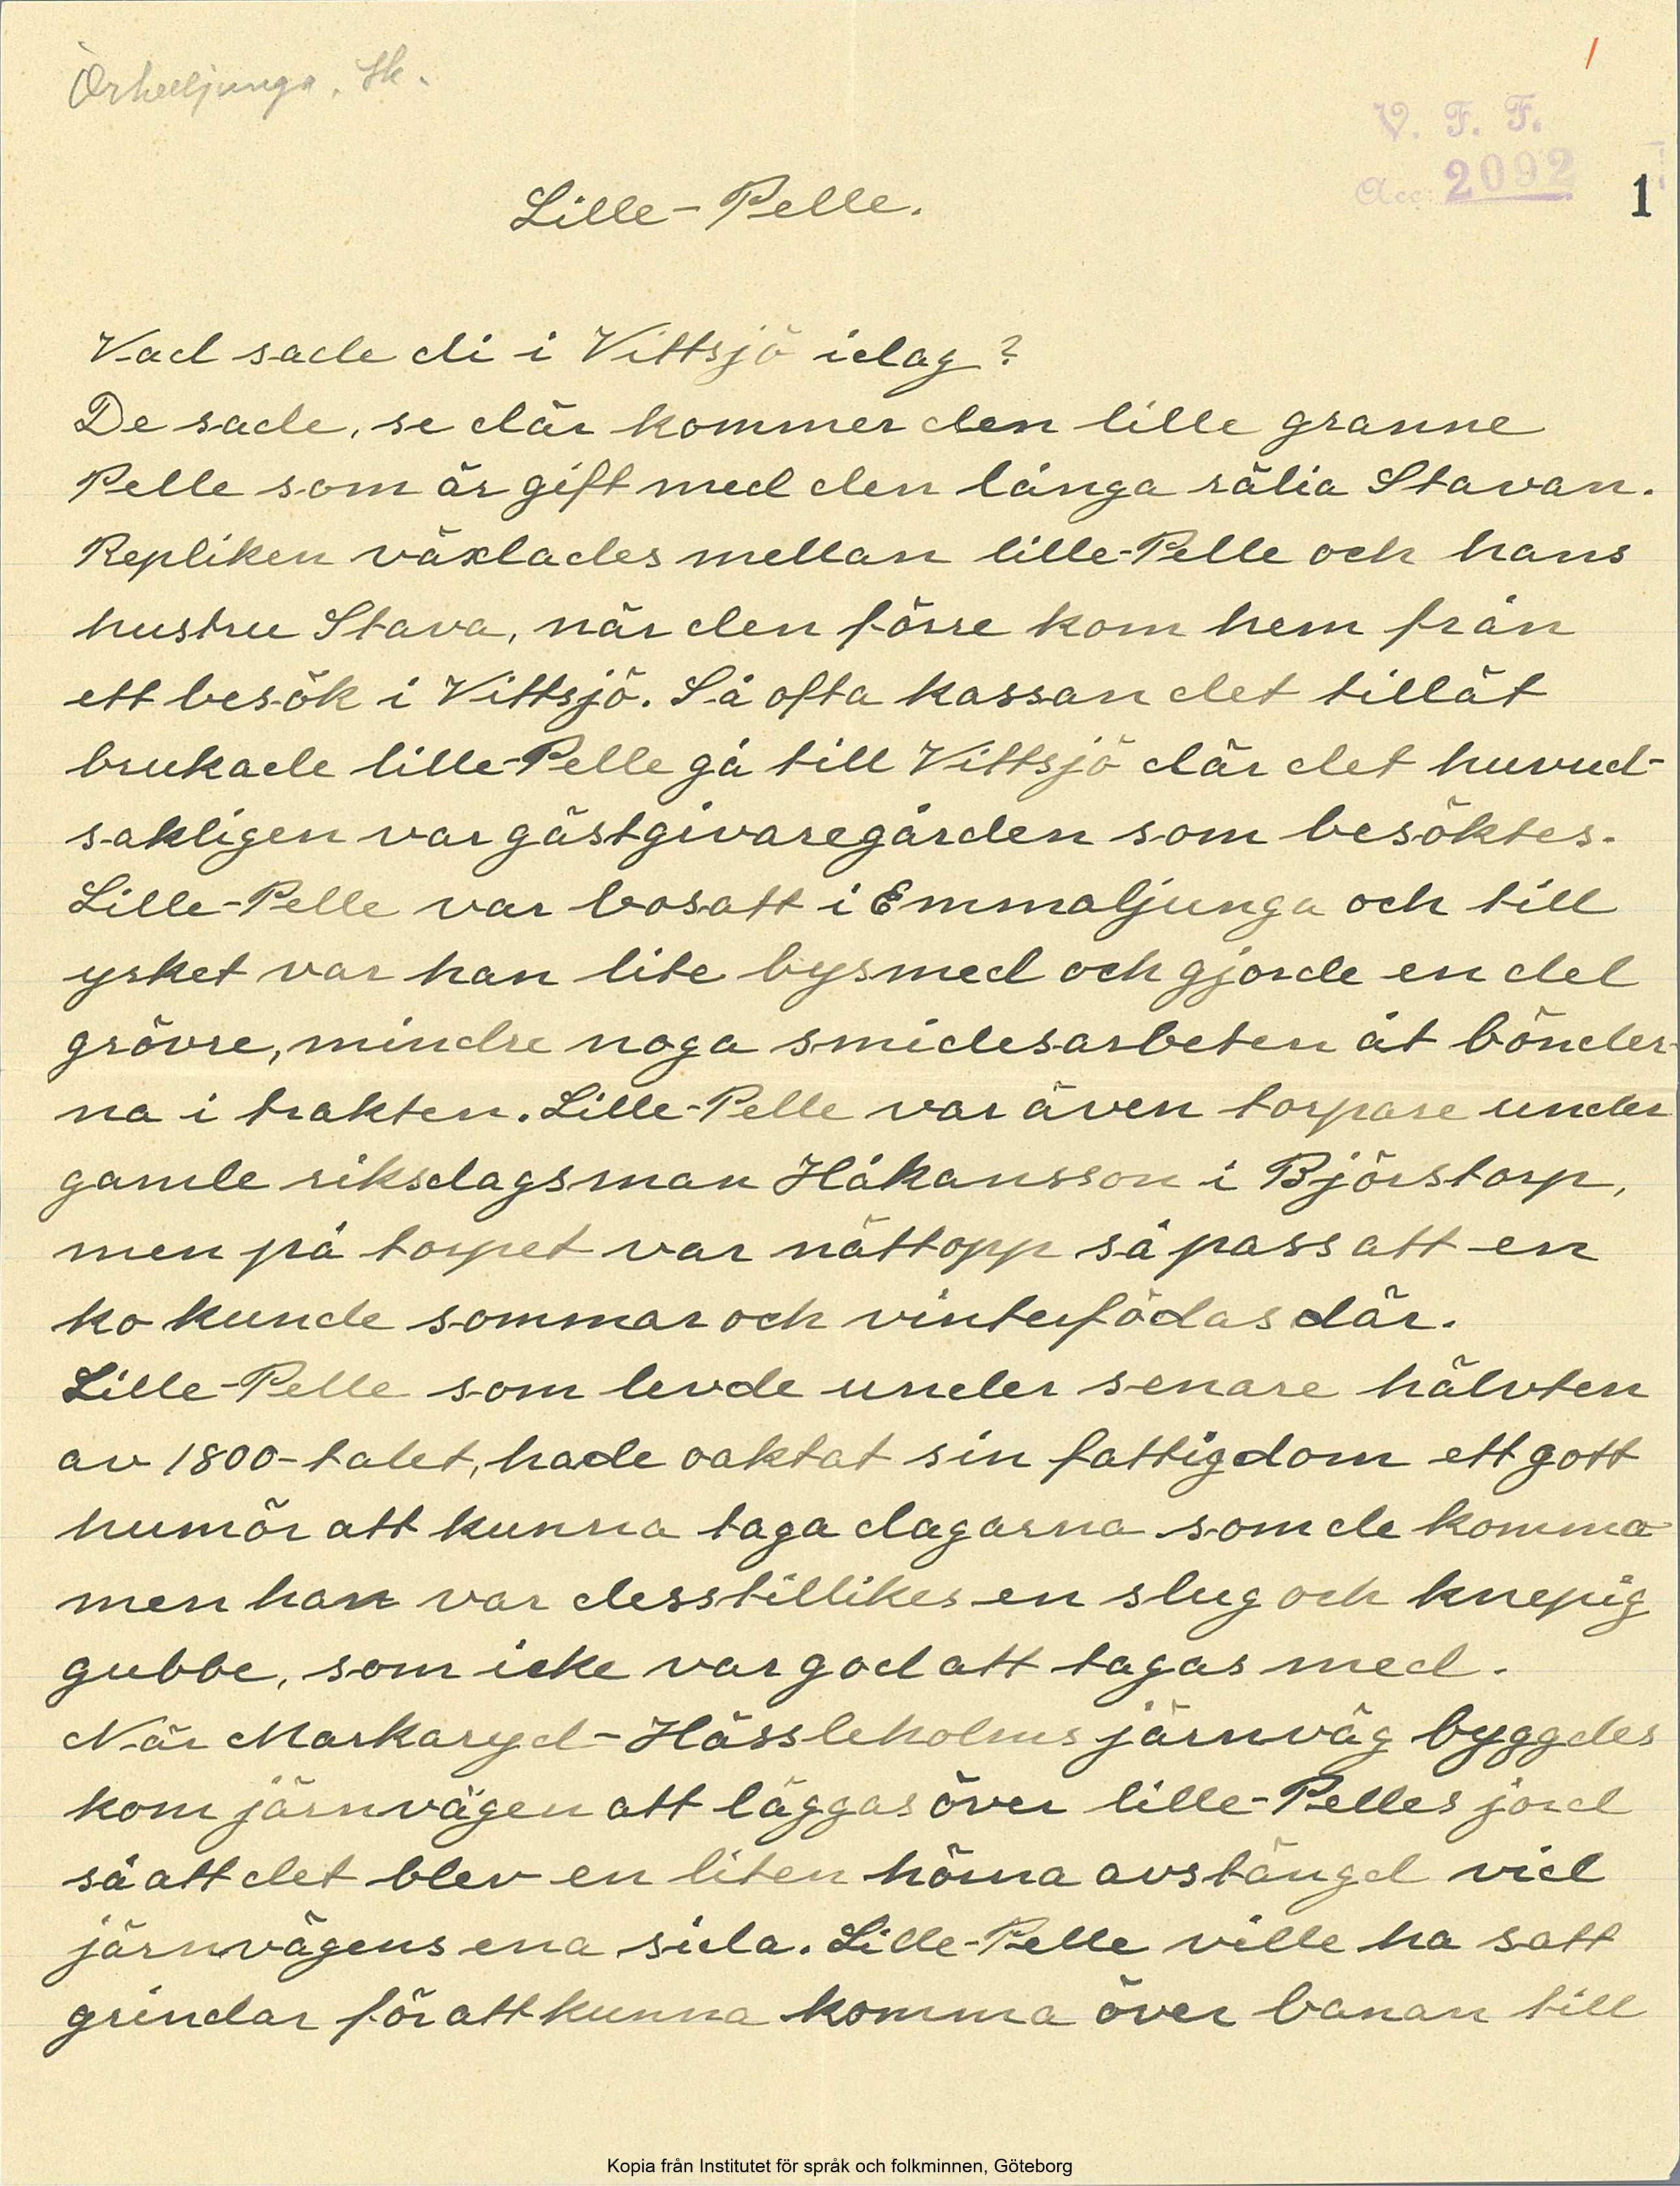 Örkelljunga. Sk.
V. F. F.
Acc: 2092
1
Lille-Pelle.
Vad sade di i Vittsjö idag?
De sade, se där kommer den lille granne
Pelle som är gift med den långa rälia Stavan.
Repliken växlades mellan lille-Pelle och hans
hustru Stava, när den förre kom hem från
ett besök i Vittsjö. Så ofta kassan det tillät
brukade lille-Pelle gå till Vittsjö där det huvud-
sakligen var gästgivaregården som besöktes.
Lille-Pelle var bosatt i Emmaljunga och till
yrket var han lite bysmed och gjorde en del
grövre, mindre noga smidesarbeten åt bönder-
na i trakten. Lille-Pelle var även torpare under
gamle riksdagsman Håkansson i Björstorp,
men på torpet var nättopp så pass att en
ko kunde sommar och vinterfödas där.
Lille-Pelle som levde under senare hälvten
av 1800-talet, hade oaktat sin fattigdom ett gott
humör att kunna taga dagarna som de komma
men han var desstillikes en slug och knepig
gubbe, som icke var god att tagas med.
När Markaryd-Hässleholms järnväg byggdes
kom järnvägen att läggas över lille-Pelles jord
så att det blev en liten hörna avstängd vid
järnvägens ena sida. Lille-Pelle ville ha satt
grindar för att kunna komma över banan till
Kopia från Institutet för språk och folkminnen, Göteborg